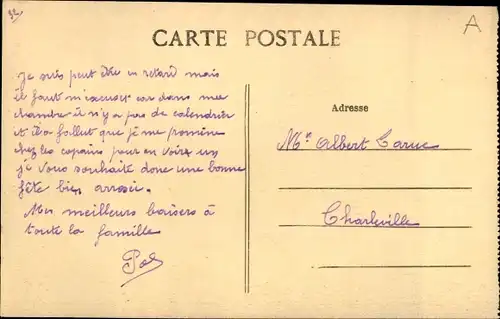 32
A
CARTE POSTALE
Je suis peut être en retard mais
il faut m'excuser car dans ma
chambre il n'y a pas de calendrier
et il a fallut que je me promène
chez les copains pour en voir un
je vous souhaite donc une bonne
fête bien arrosée.
Mes meilleurs baisers à
toute la famille
Adresse
Mr Albert
Charleville